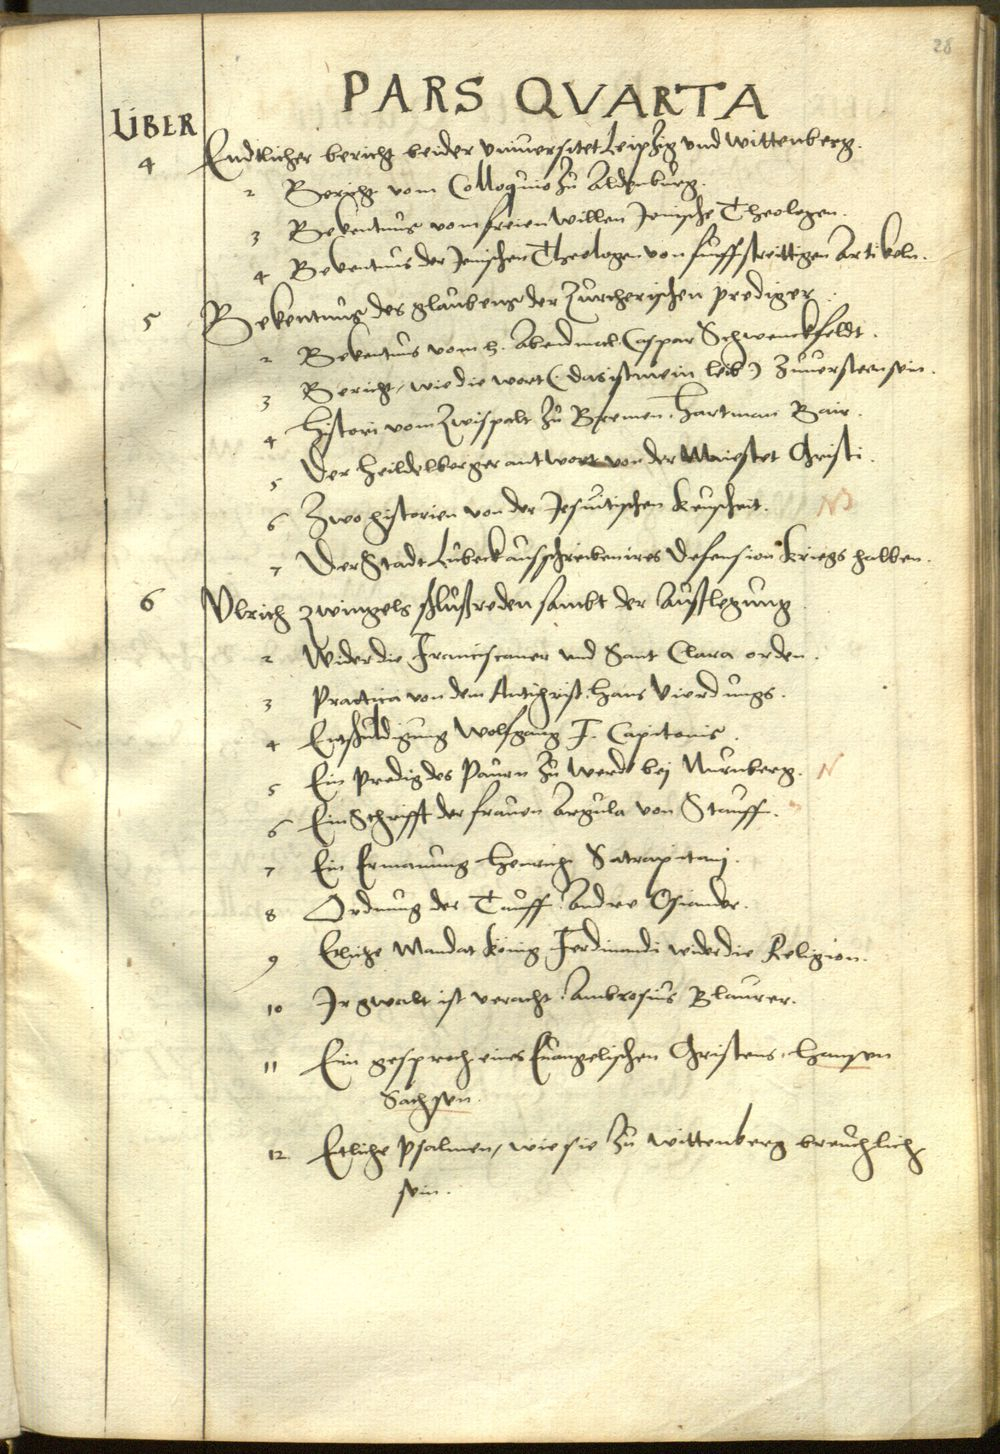 28
PARS QVARTA
LIBER
4 Endtlicher bericht beider vniuersitet Leipzig vnd Wittenberg.
2 Bericht vom Colloquio zu Aldenburg.
3 Bekentnus vom freien willen Jenische Theologen.
4 Bekentnus der Jenischen Theologen von funff streittigen Artikeln.
5 Bekentnus des glaubens der Zurcherischen prediger.
2 Bekentnus vom h. Abendmal Caspar Schwenckfeldt.
3 Bericht, wie die wort (das ist mein leib) zuuersteen sein.
4 Histori vom Zwispalt zu Bremen. Hartman Bair.
5 Der Heildelberger antwort von der Maiestet Christi.
6 Zwo historien von der Jesuitischen keuscheit. N
7 Der Stadt Lubeck ausschreiben ires Defension kriegs halben.
6 Vlrich Zwingels schlußreden sambt der Außlegung
2 Wider die Franciscaner vnd Sant Clara orden.
3 Practica von dem Antichrist. Hans Vierdungs.
4 Entschuldigung Wolfgang F. Capitonis.
5 Ein Predig des Paurn zu Werdt bej Nurnberg. N
6 Ein Schrifft der frauen Argula von Stauff.
7 Ein Ermanung Henrichi Satrapitanj.
8 Ordnung der Tauff. Andree Osiander.
9 Etliche Mandat könig Ferdinandi wider die Religion.
10 Ir gwalt ist veracht. Ambrosius Blaurer.
11 Ein gesprech eines Euangelischen Christens. Hansen
Sachsen.
12 Etliche Psalmen, wie sie zu Wittenberg breuchlich
sein.